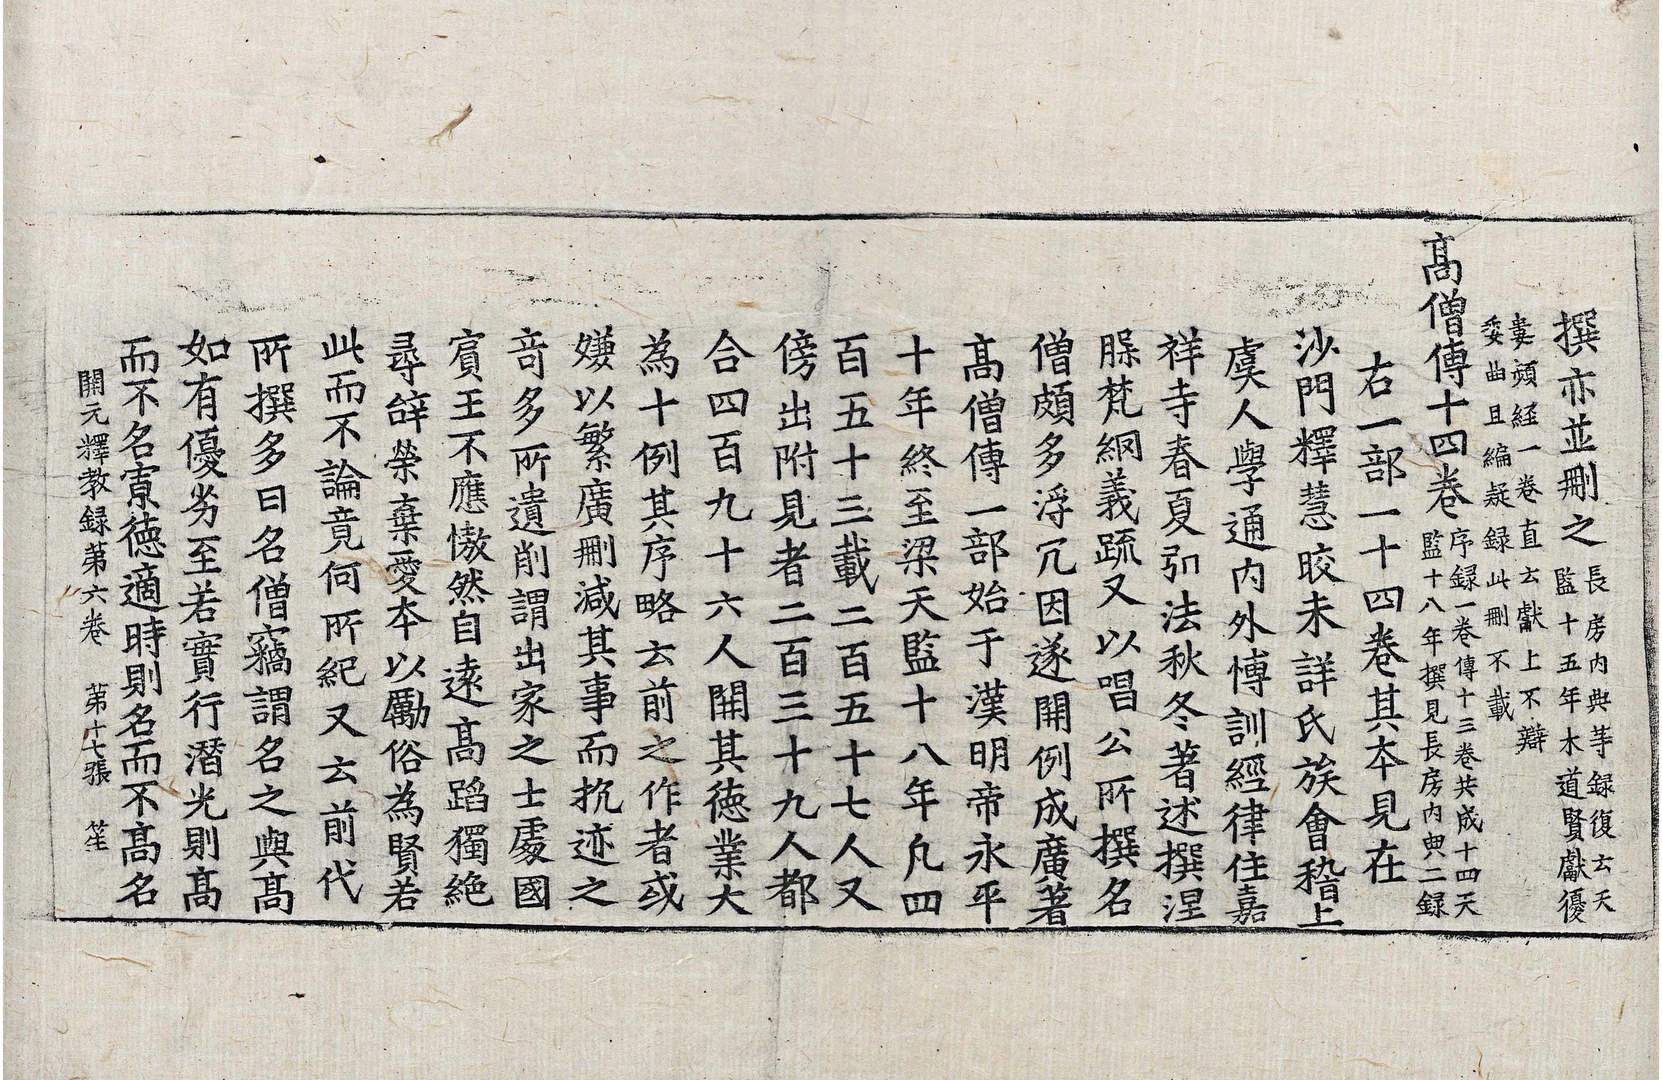 撰亦並刪之長房內典等録復云天
監十五年木道賢獻優
婁頻経一卷直云獻上不辯
委曲且編疑録此刪不載
髙僧傳十四卷序録一卷傳十三卷共成十四天
監十八年撰見長房內典二録
右一部一十四卷其本見在
沙門釋慧皎未詳氏族會稽上
虞人學通內外博訓經律住嘉
祥寺春夏弘法秋冬著述撰涅
槃梵網義疏又以唱公所撰名
僧頗多浮冗因遂開例成廣著
髙僧傳一部始于漢明帝永平
十年終至梁天監十八年凡四
百五十三載二百五十七人又
傍出附見者二百三十九人都
合四百九十六人開其徳業大
為十例其序略云前之作者或
嫌以繁廣刪減其事而抗迹之
竒多所遺削謂出家之士處國
賓王不應慠然自遠髙蹈獨絶
尋辝榮棄愛本以勵俗為賢若
此而不論竟何所紀又云前代
所撰多曰名僧竊謂名之與髙
如有優劣至若實行潛光則髙
而不名寡徳適時則名而不髙名
開元釋教録苐六卷　苐十七張　笙